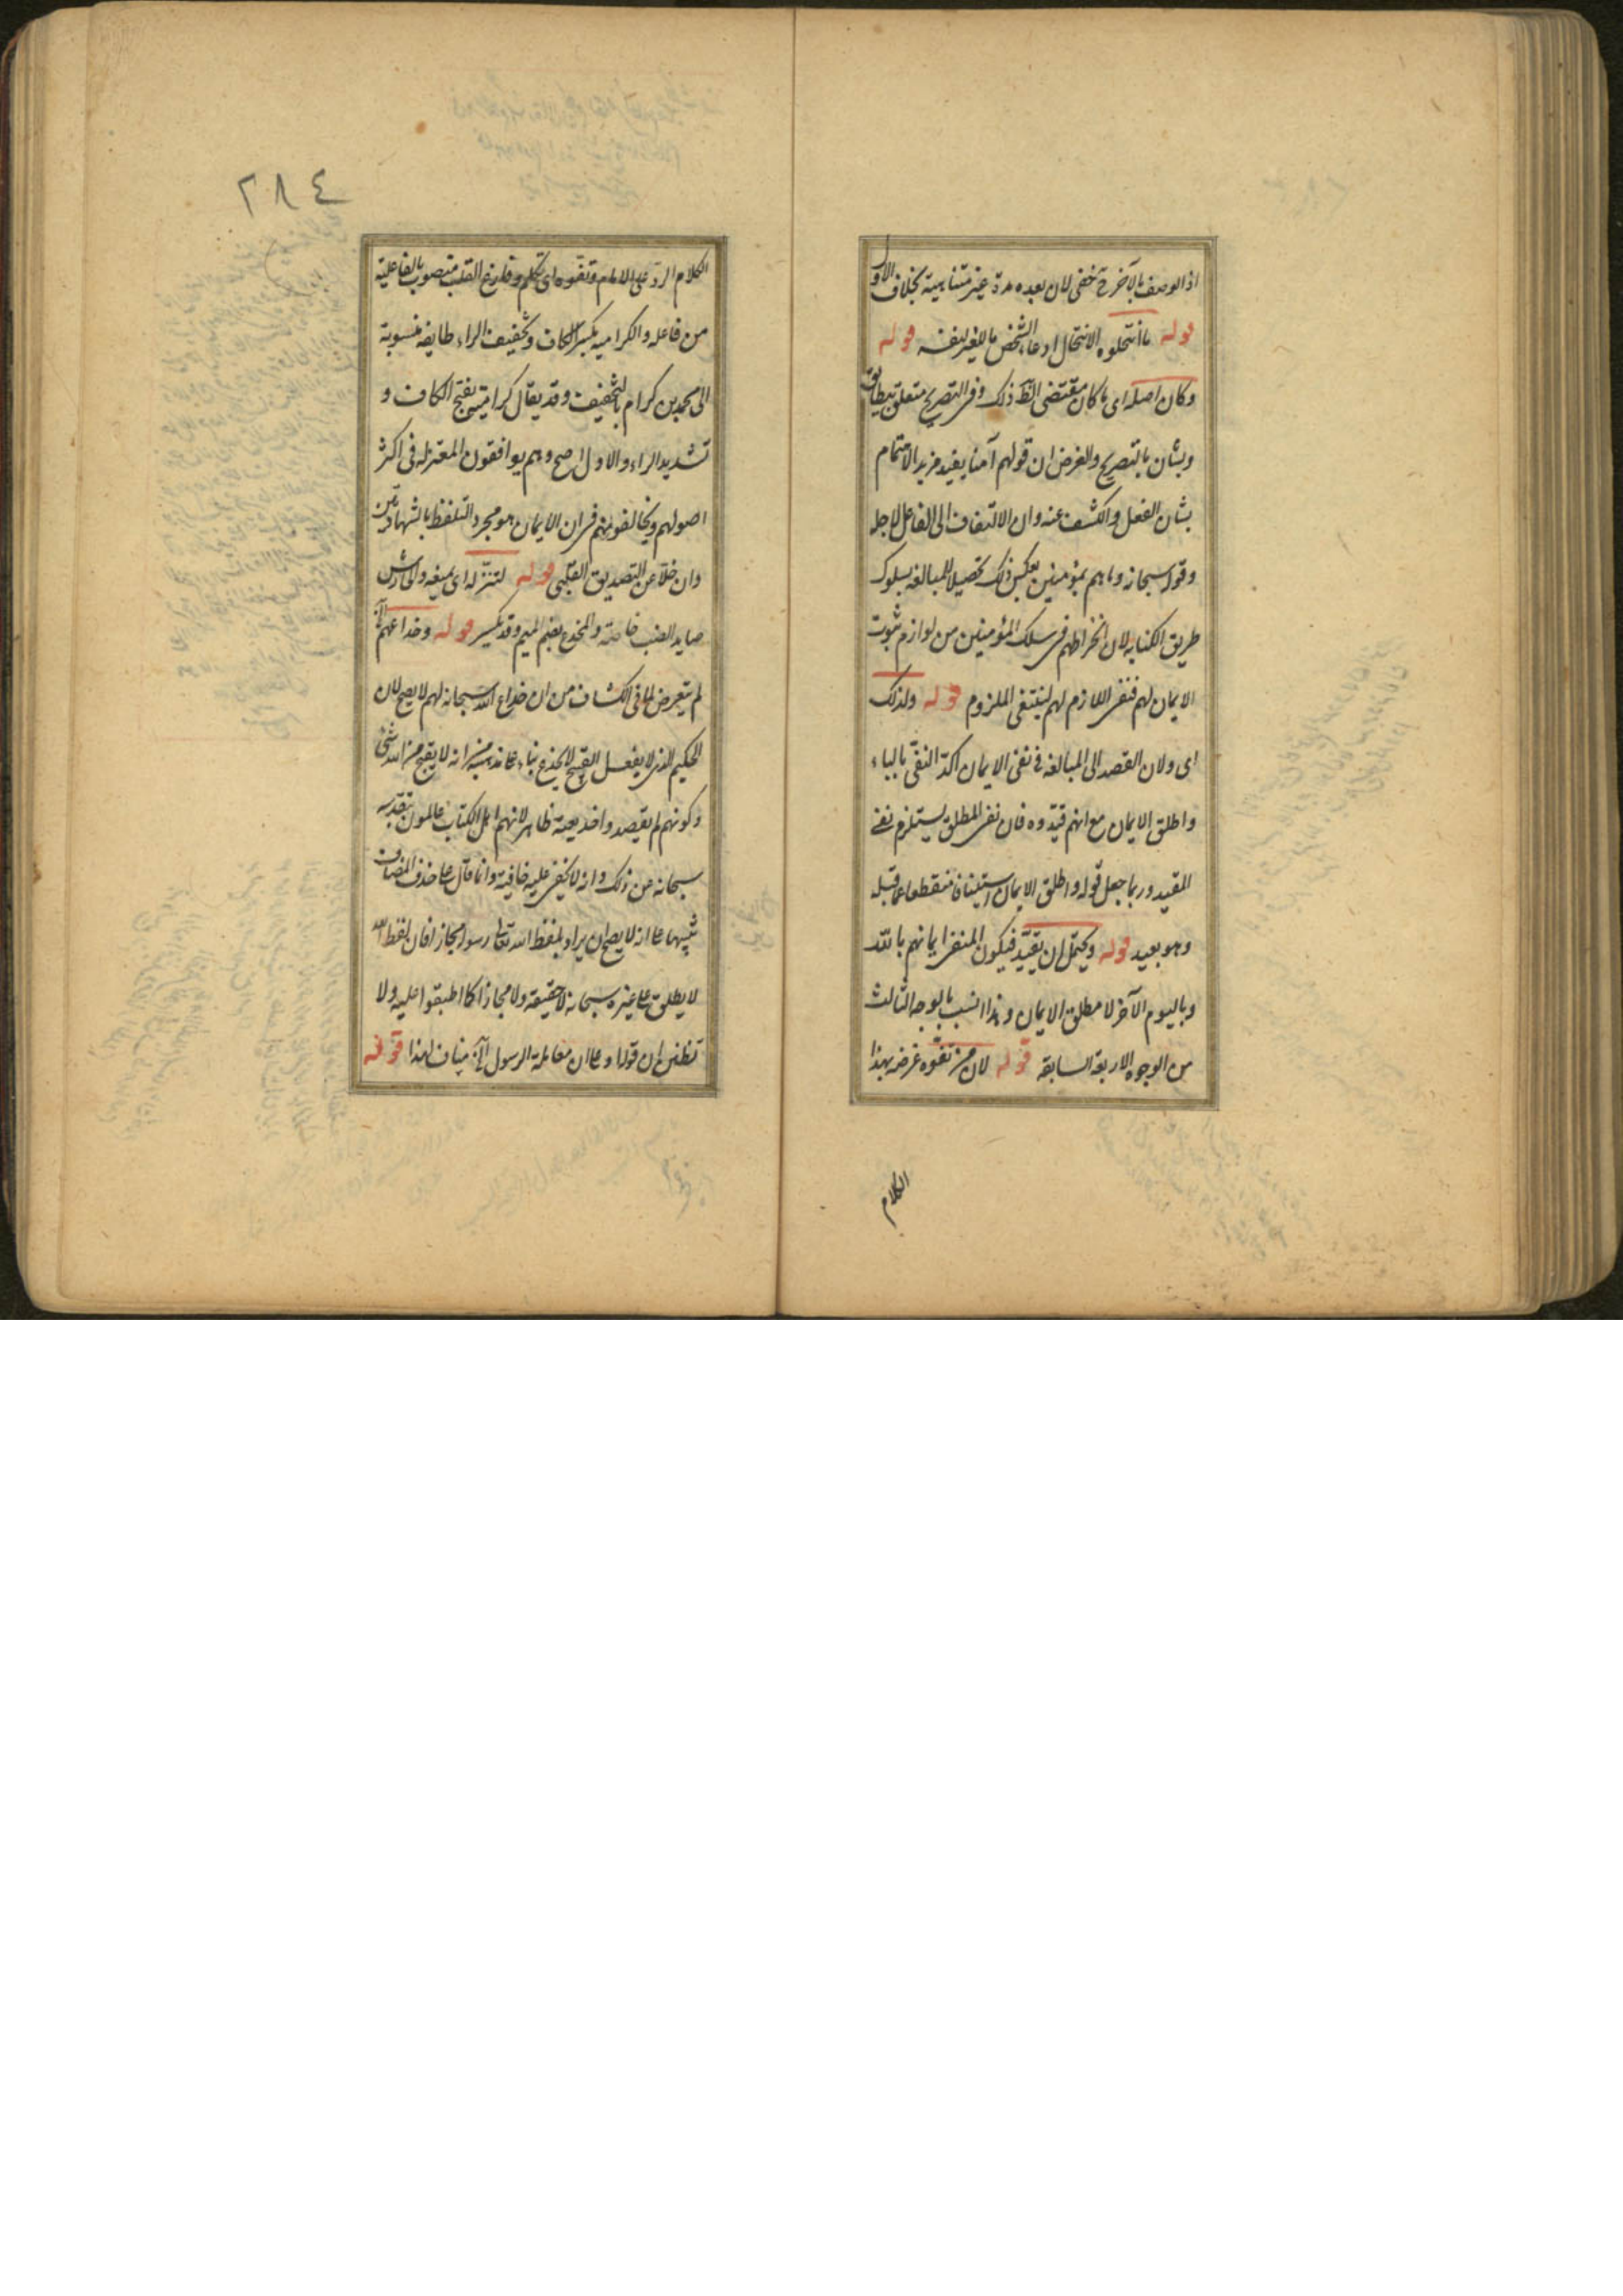 اذ الوصف بالآخر ح خفى لان بعده مدة غير متناهية بخلاف الاول
قوله ما انتحلوه الانتحال ادعاء الشخص ما للغير لنفسه قوله
وكان اصله اى ما كان مقتضى الظ ذلك وفى التصريح متعلق بيطابق
وبشان بالتصريح والغرض ان قولهم آمنا يفيد مزيد الاهتمام
بشان الفعل والكشف عنه وان الالتفات الى الفاعل لاجله
وقوله سبحانه وما هم بمؤمنين بعكس ذلك تحصيلا للمبالغه بسلوك
طريق الكنايه لان انخراطهم فى سلك المؤمنين من لوازم ثبوت
الايمان لهم فنفى اللازم لهم لينتفى الملزوم قوله ولذلك
اى ولان القصد الى المبالغه فى نفى الايمان اكد النفى بالباء
واطلق الايمان مع انهم قيدوه فان نفى المطلق يستلزم نفى
المقيد وربما جعل قوله واطلق الايمان استينافا منقطعا عما قبله
وهو بعيد قوله ويحتمل ان يقيد فيكون المنفى ايمانهم بالله
وباليوم الآخر لا مطلق الايمان وهذا انسب بالوجه الثالث
من الوجوه الاربعة السابقه قوله لان من تفوه غرضه بهذا
الكلام
٢٨٤
الكلام الرد على الامام وتفوه اى تكلم وفارغ القلب منصوب بالفاعلية
من فاعله والكراميه بكسر الكاف وتخفيف الراء طايفه منسوبة
الى محمد بن كرام بالتخفيف وقد يقال كراميين بفتح الكاف و
تشديد الراء والاول اصح وهم يوافقون المعتزله فى اكثر
اصولهم ويخالفونهم فى ان الايمان هو مجرد التلفظ بالشهادتين
وان خلا عن التصديق القلبى قوله لتنزله اى بمبغه والحارش
صايد الضب خاصة والمخدع بضم الميم وقد يكسر قوله وخداعهم الخ
لم يتعرض لما فى الكشاف من ان خداع الله سبحانه لهم لا يصح لان
الحكيم الذى لا يفعل القبيح لا يخدع بناء على مذهبه من انه لا يقبح من الله شئ
وكونهم لم يقصدوا خديعته ظاهر لانهم اهل الكتاب عالمون بتقدسه
سبحانه عن ذلك وانه لا يخفى عليه خافية وانما قال على حذف المضاف
تنبيها على انه لا يصح ان يراد بلفظ الله تعالى رسوله مجازا فان لفظ الله
لا يطلق على غيره سبحانه لا حقيقة ولا مجازا كما اطبقوا عليه ولا
تظنن ان قوله او على ان معاملة الرسول الخ مناف لهذا قوله